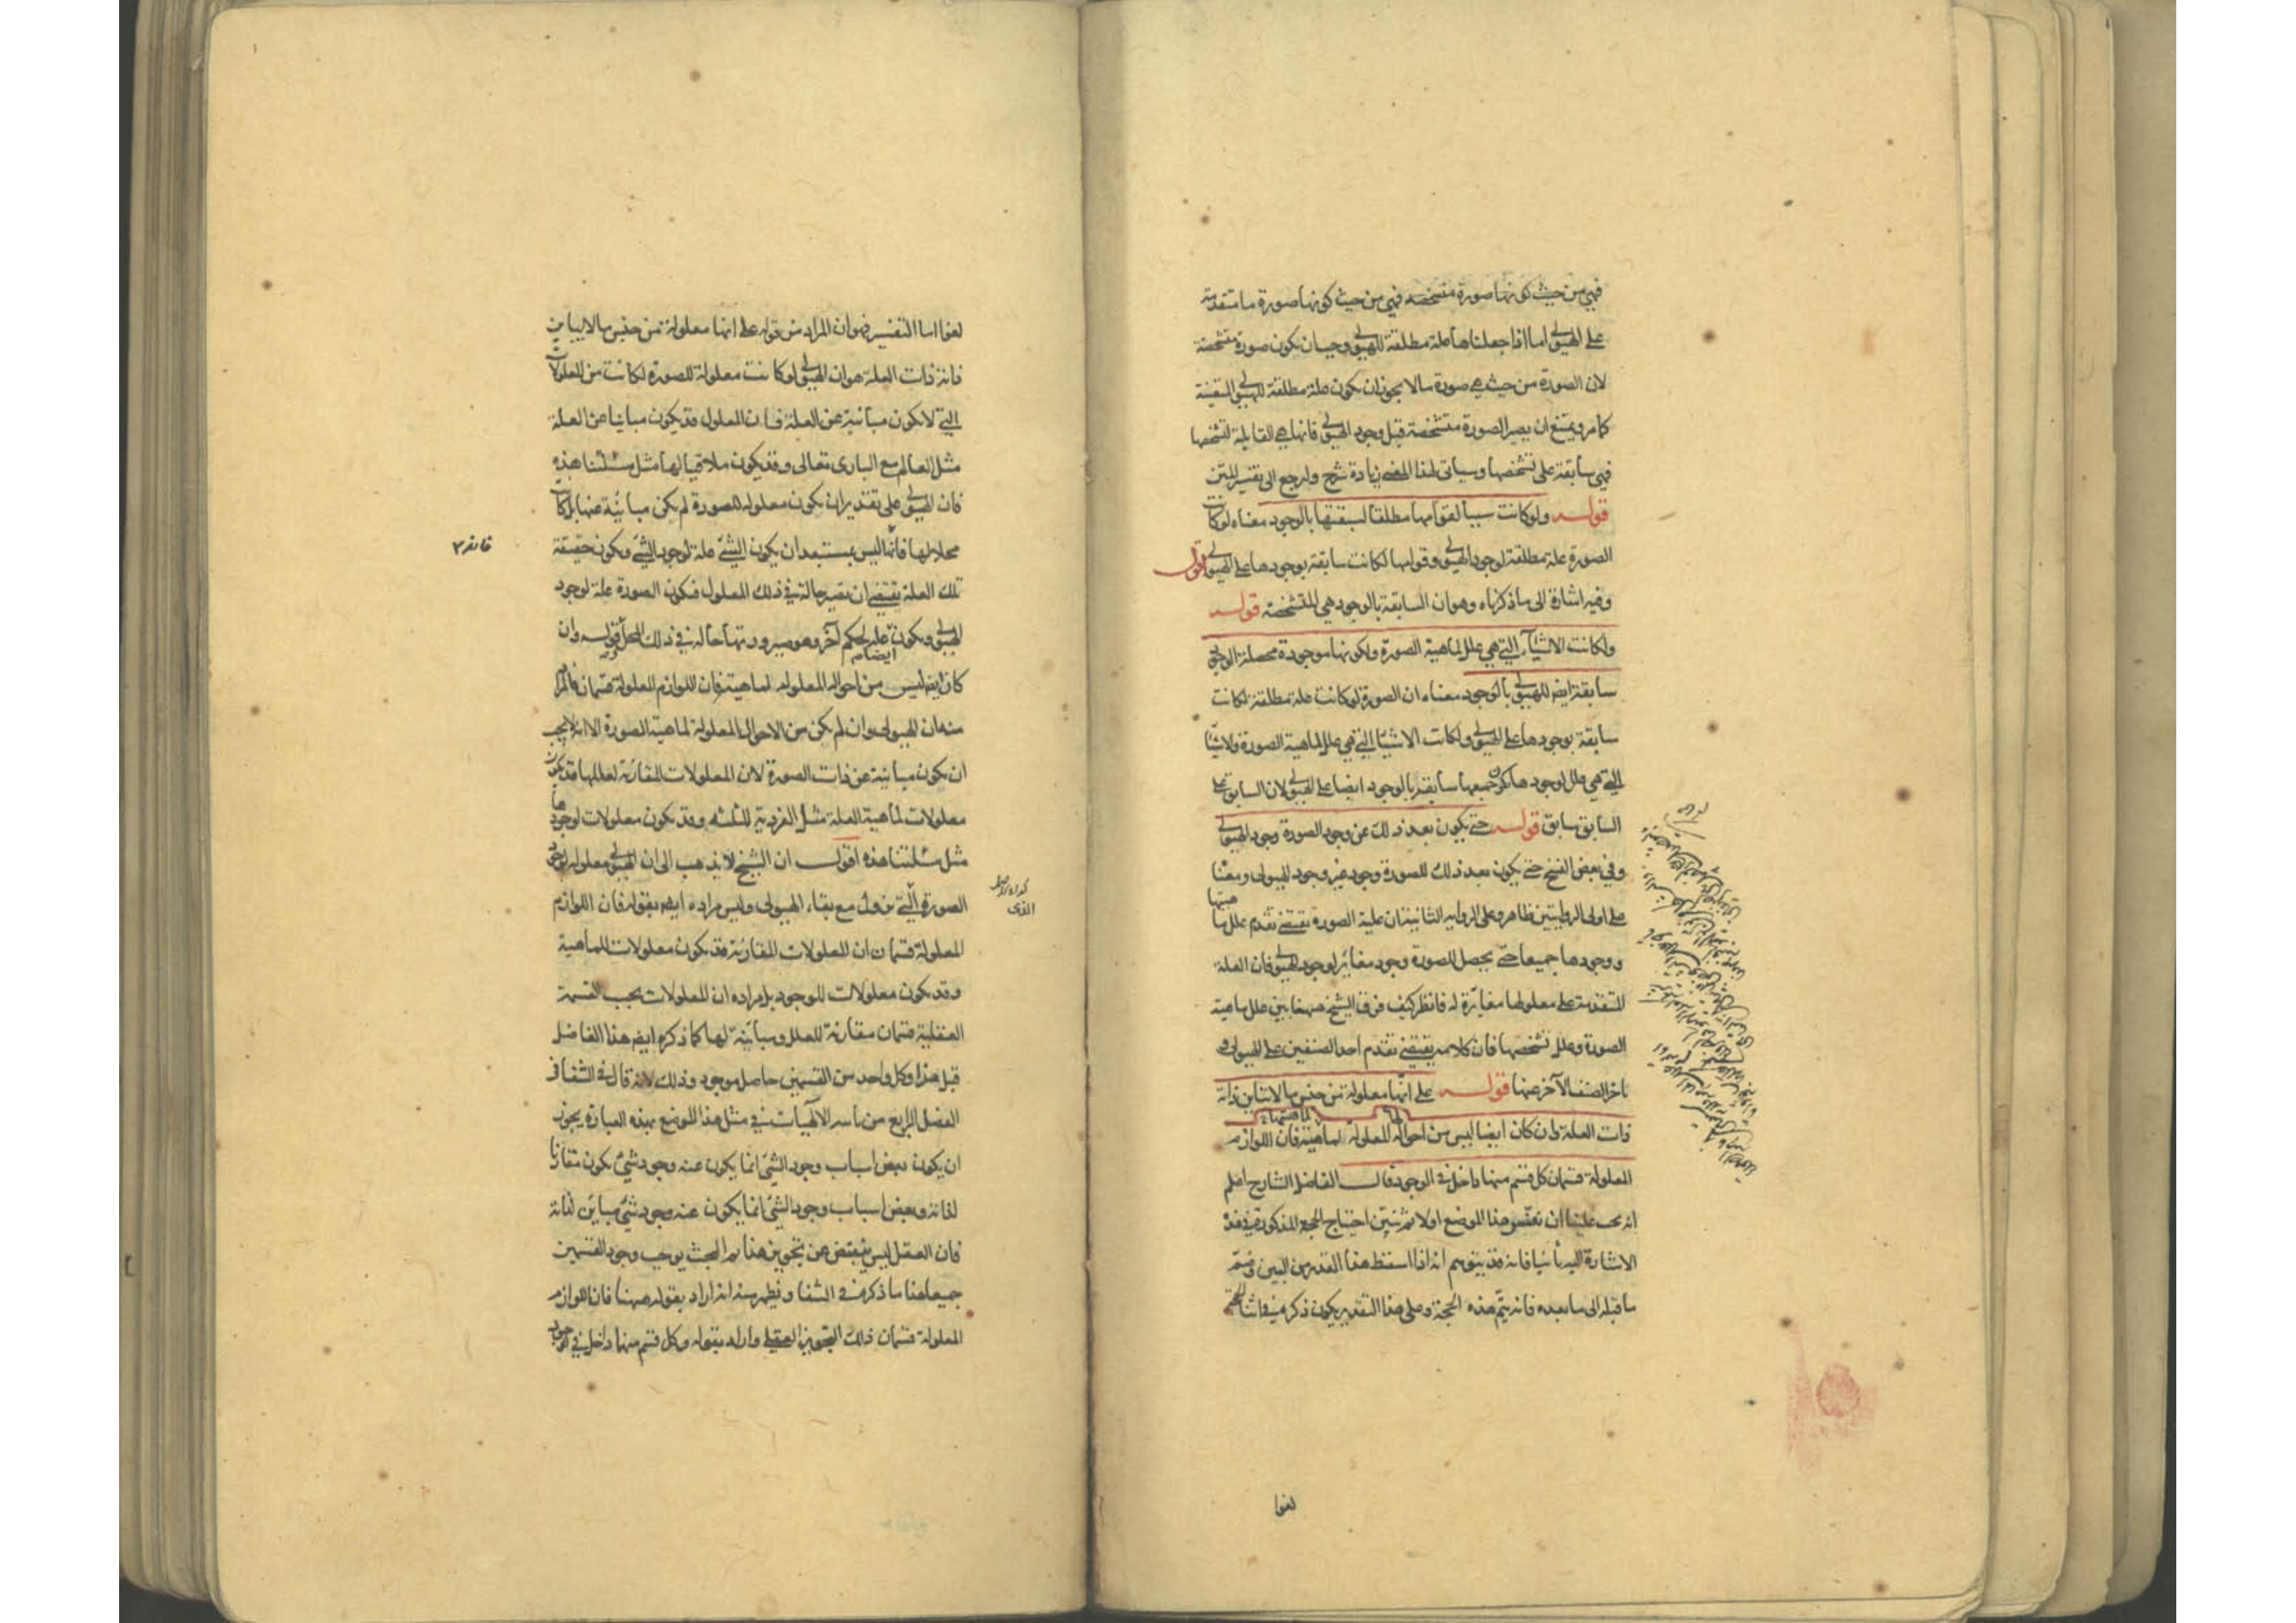 فهي من حيث كونها صورة متشخصة فهي من حيث كونها صورة ما متقدمة
على الهيولى اما اذا جعلناها علة مطلقة للهيولى وجب ان يكون صورة متشخصة
لان الصورة من حيث هي صورة ما لا يجوز ان يكون علة مطلقة للهيولى المتعينة
كما مر ويمتنع ان يصير الصورة متشخصة قبل وجود الهيولى فانها هي القابلة لتشخصها
فهي سابقة على تشخصها وسياتى لهذا المعنى زيادة شرح ولنرجع الى تفسير المتن
قوله ولو كانت سببا لقوامها مطلقا لسبقتها بالوجود معناه لو كانت
الصورة علة مطلقة لوجود الهيولى وقوامها لكانت سابقة بوجودها على الهيولى اقول
وفيه اشارة الى ما ذكرناه وهو ان السابقة بالوجود هي المتشخصة قوله
ولكانت الاشياء التي هي علل لماهية الصورة ولكونها موجودة محصلة الوجود
سابقة ايضا للهيولى بالوجود معناه ان الصورة لو كانت علة مطلقة لكانت
سابقة بوجودها على الهيولى ولكانت الاشياء التي هي علل لماهية الصورة والاشياء
التي هي علل لوجودها جميعها سابقة بالوجود ايضا على الهيولى لان السابق على
السابق سابق قوله حتى يكون بعد ذلك عن وجود الصورة وجود الهيولى
وفي بعض النسخ حتى يكون بعد ذلك للصورة وجود غير وجود الهيولى ومعناه
على اولى الروايتين ظاهر وعلى الرواية الثانية ان علية الصورة يقتضى تقدم علل ماهيتها
ووجودها جميعا حتى يحصل للصورة وجود مغاير لوجود الهيولى فان العلة
المتقدمة على معلولها مغايرة له فانظر كيف فرق الشيخ ههنا بين علل ماهية
الصورة وعلل تشخصها فان كلامه يقتضى تقدم احد الصنفين على الهيولى و
تاخر الصنف الآخر عنها قوله على انها معلولة من جنس ما لا يباين ذاته
ذات العلة وان كان ايضا ليس من احواله المعلولة لماهيته فان اللوازم
المعلولة قسمان كل قسم منهما داخل في الوجود قال الفاضل الشارح اعلم
انه يجب علينا ان نفسر هذا الموضع اولا ثم نبين احتياج الحجة المذكورة في هذه
الاشارة اليه ثانيا فانه قد يتوهم انه اذا اسقط هذا القدر من البين وضم
ما قبله الى ما بعده فانه يتم هذه الحجة وعلى هذا التقدير يكون ذكره في اثناء الحجة
لغوا
لغوا اما التفسير فهو ان المراد من قوله على انها معلولة من جنس ما لا يباين
ذاته ذات العلة هو ان الهيولى لو كانت معلولة للصورة لكانت من المعلولات
التي لا يكون مباينة عن العلة فان المعلول قد يكون مباينا عن العلة
مثل العالم مع البارى تعالى وقد يكون ملاقيا لها مثل مسئلتنا هذه
فان الهيولى على تقدير ان يكون معلولة للصورة لم يكن مباينة عنها بل كانت
محلا لها فانه ليس بمستبعد ان يكون الشئ علة لوجود الشئ ويكون حقيقة
تلك العلة يقتضى ان يصير حالة في ذلك المعلول فيكون الصورة علة لوجود
الهيولى ويكون علة لحكم آخر وهو صيرورتها حالة في ذلك المحل قوله وان
كان ايضا ليس من احواله المعلولة لماهيته فان اللوازم المعلولة قسمان فالمراد
منه ان الهيولى وان لم يكن من الاحوال المعلولة لماهية الصورة الا انه لا يجب
ان يكون مباينة عن ذات الصورة لان المعلولات المقارنة لعللها قد يكون
معلولات لماهية العلة مثل الفردية للثلثة وقد يكون معلولات لوجودها
مثل مسئلتنا هذه اقول ان الشيخ لا يذهب الى ان الهيولى معلولة لوجود
الصورة التي تزول مع بقاء الهيولى وليس مراده ايضا بقوله فان اللوازم
المعلولة قسمان ان المعلولات المقارنة قد يكون معلولات للماهية
وقد يكون معلولات للوجود بل مراده ان المعلولات بحسب القسمة
العقلية قسمان مقارنة للعلل ومباينة لها كما ذكره ايضا هذا الفاضل
قبل هذا وكل واحد من القسمين حاصل موجود وذلك لانه قال في الشفا في
الفصل الرابع من الالهيات في مثل هذا الموضع بهذه العبارة يجوز
ان يكون بعض اسباب وجود الشئ انما يكون عنه وجود شئ يكون مقارنا
لذاته وبعض اسباب وجود الشئ انما يكون عنه وجود شئ مباين لذاته
فان العقل ليس ينقبض عن تجويز هذا ثم البحث يوجب وجود القسمين
جميعا هذا ما ذكره في الشفا وظهر منه انه اراد بقوله ههنا فان اللوازم
المعلولة قسمان ذلك التجويز العقلى واراد بقوله وكل قسم منهما داخل في الوجود